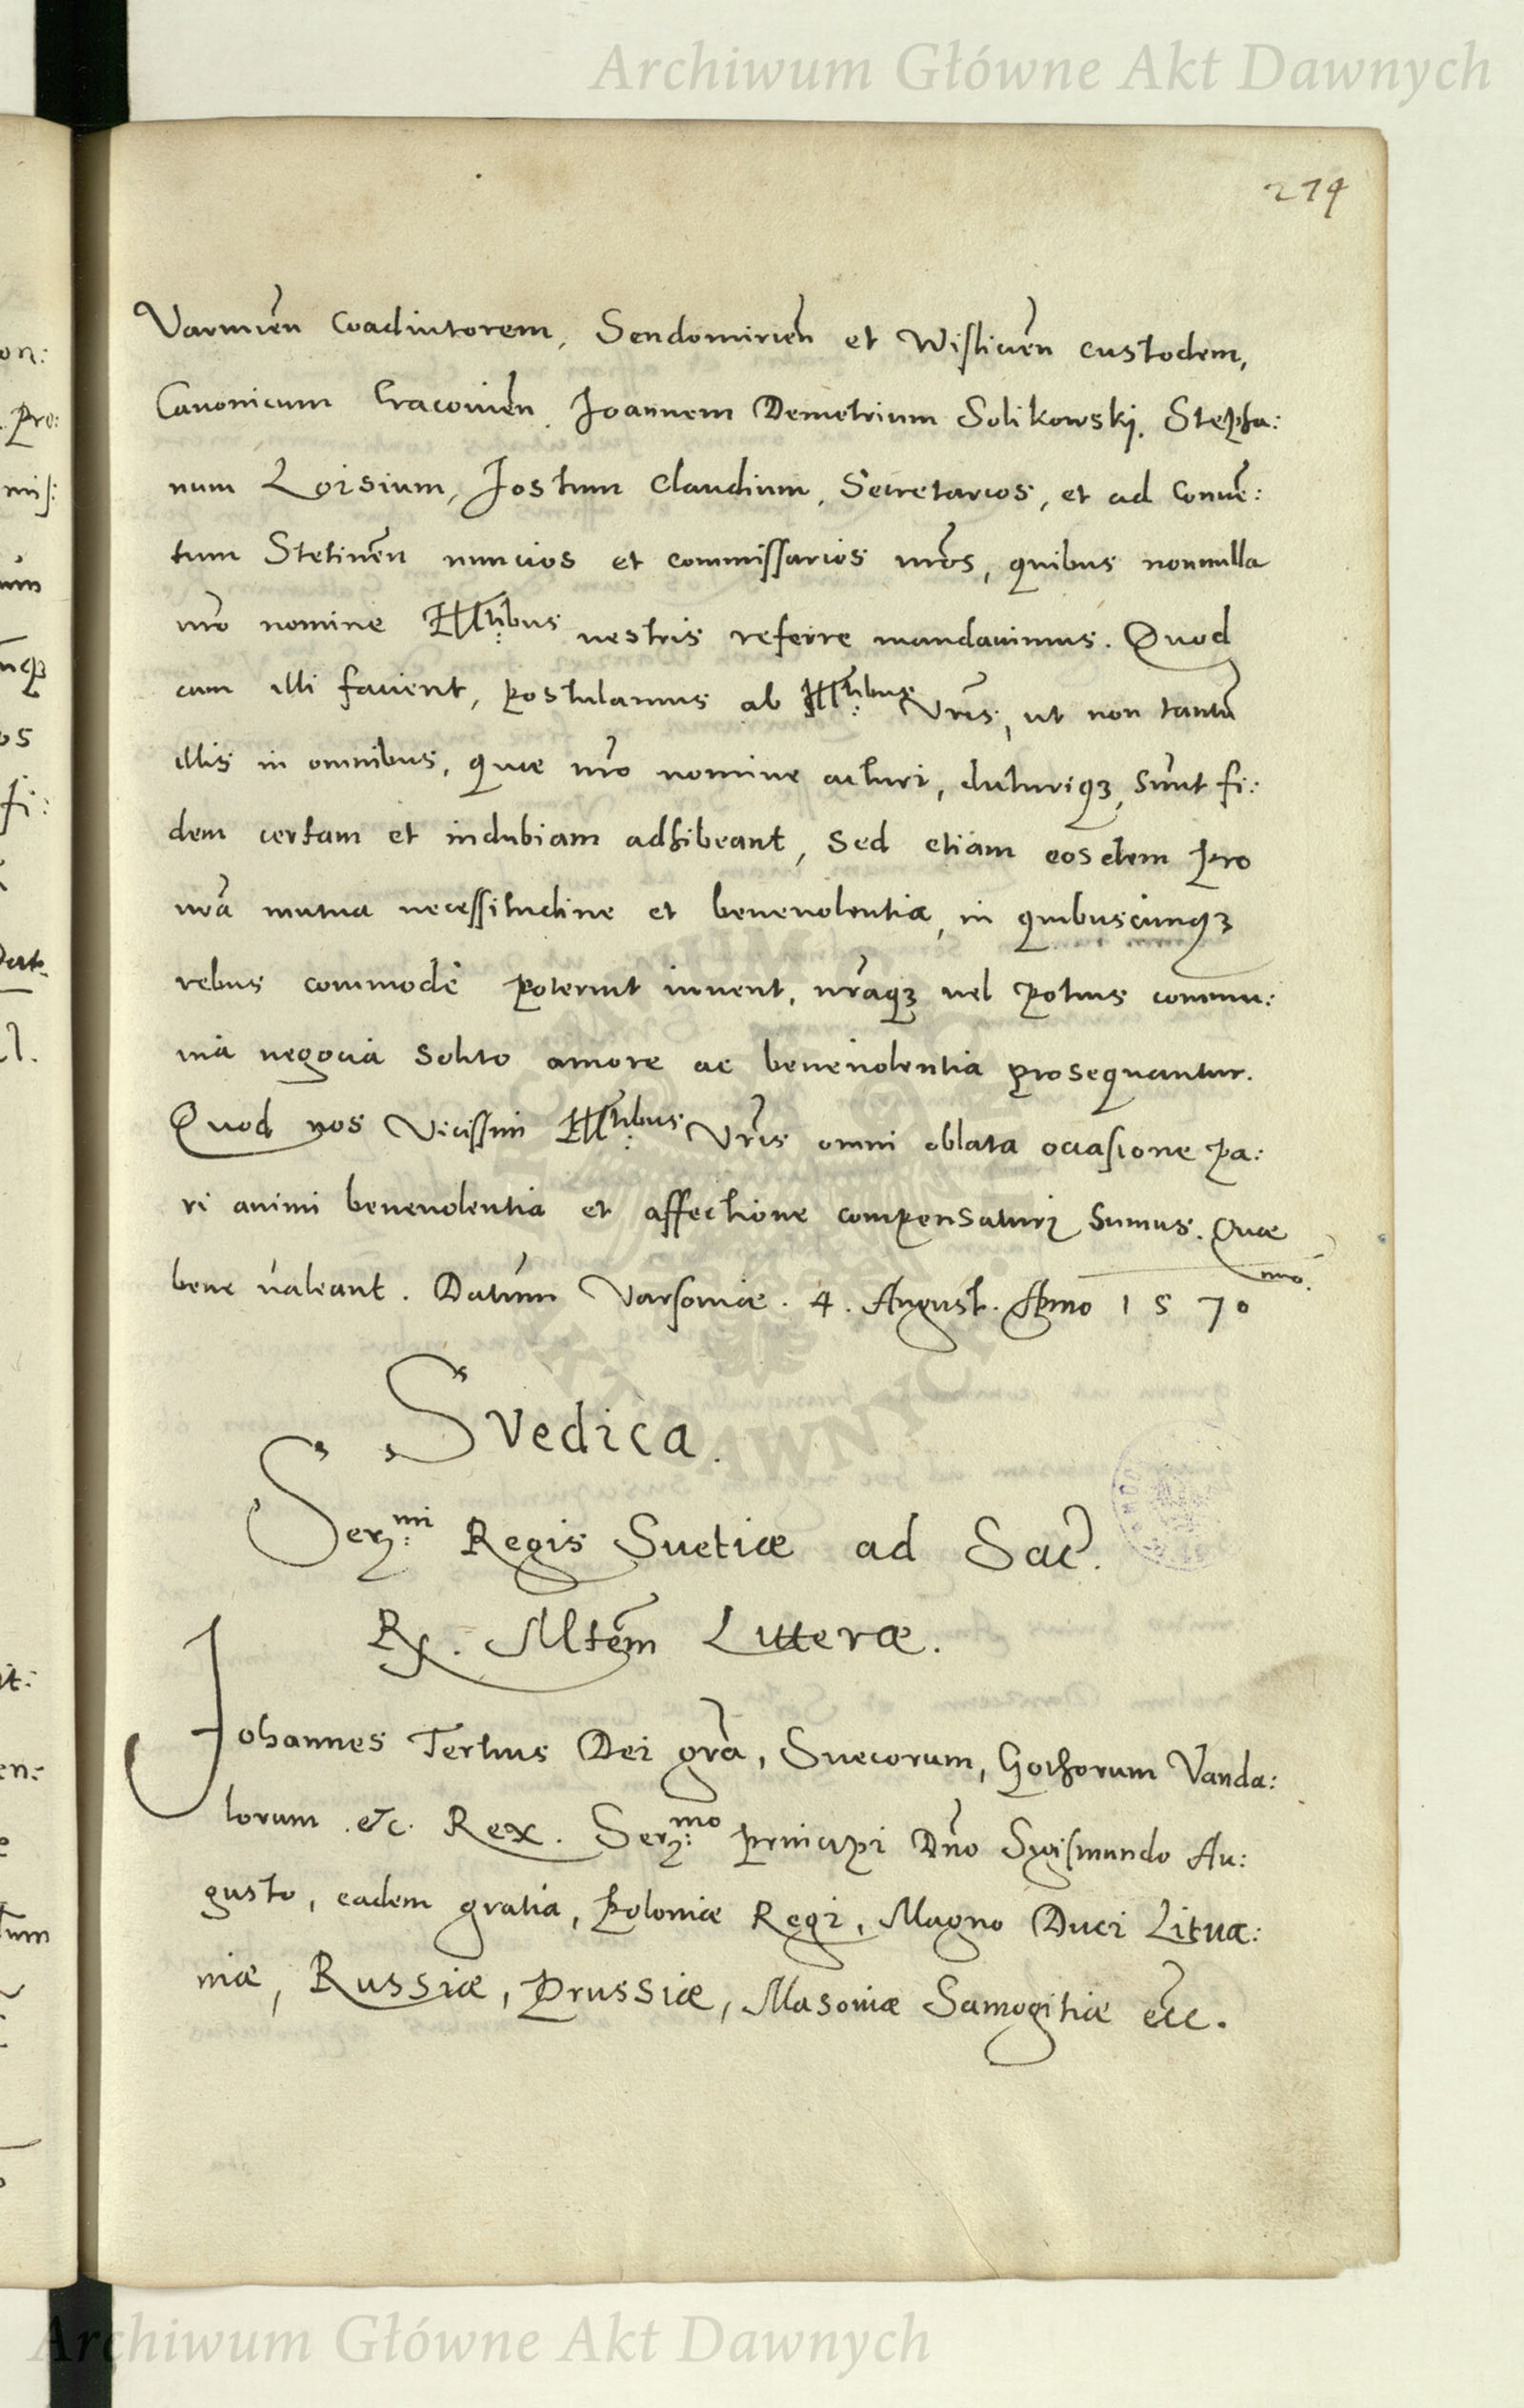 Archiwum Główne Akt Dawnych
274
Varmien̄ Coadiutorem, Sendomirien̄ et Wislicen̄ custodem,
Canonicum Cracovien̄ Joannem Demetrium Solikowskj. Stepha:
num Loisium, Jostum Claudium, Secretarios, et ad Conuē:
tum Stetinen̄ nuncios et commissarios nr̄os, quibus nonnulla
nr̄o nomine Ill:tibus uestris referre mandauimus. Quod
cum illi facient, postulamus ab Ill:tibus Vr̄is, ut non tantū
illis in omnibus, quae nr̄o nomine acturi, dicturiq₃ sunt fi:
dem certam et indubiam adhibeant, sed etiam eosdem pro
nr̄a mutua necessitudine et beneuolentia, in quibuscunq₃
rebus commodè poterint iuuent, nr̄aq₃ uel potius commu:
nia negocia solito amore ac beneuolentia prosequantur.
Quod nos Vicissim Ill:tibus Vr̄is omni oblata occasione pa:
ri animi beneuolentia et affectione compensaturi sumus. Quae
bene ualeant. Datum Varsoviae. 4. August. Anno 1570 mo.
Svedica.
Ser:mi Regis Suetiae ad Sac̄.
Rx. Mtēm Litterae.
Johannes Tertius Dei gr̄a, Suecorum, Gothorum Vanda:
lorum etc. Rex. Ser:mo principi Dn̄o Sigismundo Au:
gusto, eadem gratia, Poloniae Regi, Magno Duci Litua:
niae, Russiae, Prussiae, Masoviae Samogitiae etc.
Archiwum Główne Akt Dawnych